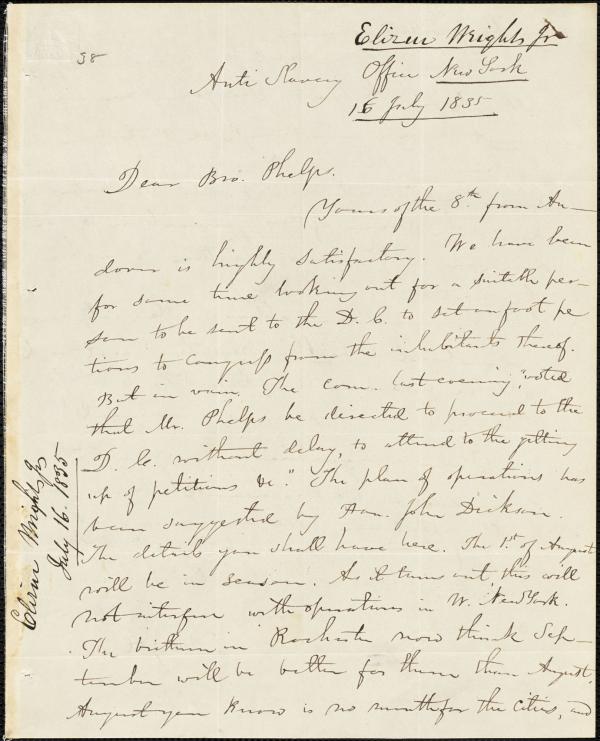 Elizur Wright Jr
58
Anti Slavery Office New York
16 July 1835.
Dear Bro. Phelps.
Yours of the 8.th from An-
dover is highly satisfactory. We have been
for some time looking out for a suitable per-
son to be sent to the D. C. to set on foot pe
titions to Congress from the inhabitants thereof.
But in vain. The com. last evening, "voted
that Mr. Phelps be directed to proceed to the
D. C. without delay, to attend to the getting
up of petitions &c." The plan of operations has
been suggested by Hon. John Dickson.
The details you shall have here. The 1st. of August
will be in season. As it turns out, this will
not interfere with operations in W. New York.
The brethren in Rochester now think Sep-
tember will be better for them than August.
August you know is no month for the cities, and
Elizur Wright Jr
July 16. 1835